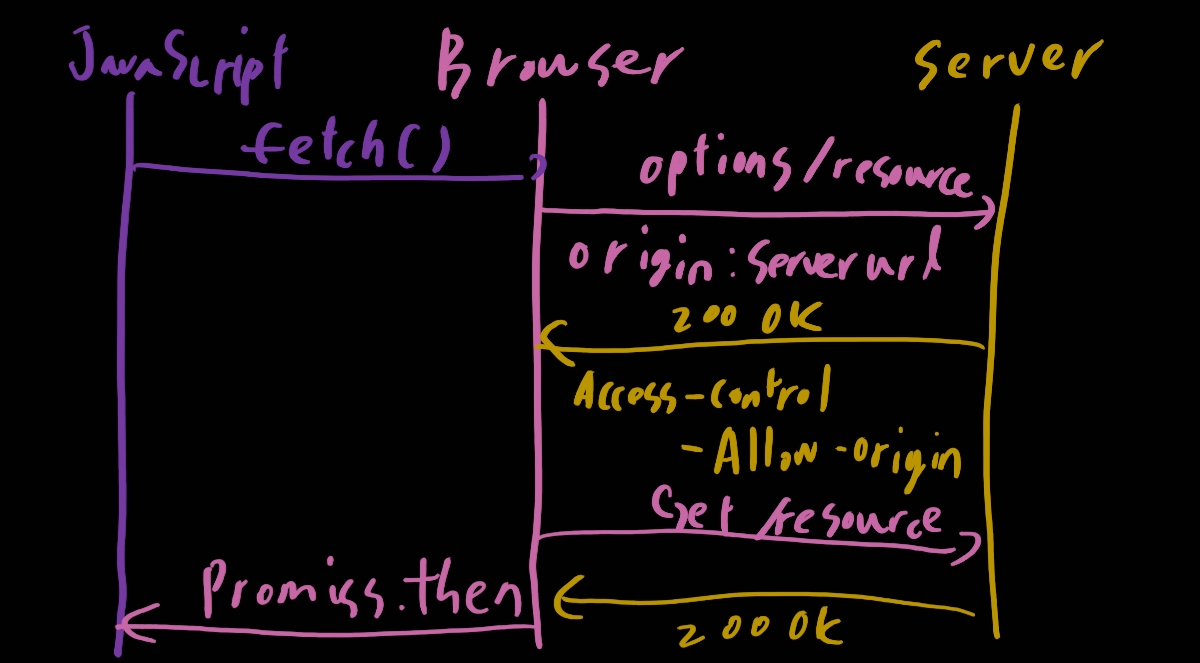 JavaScript Browser Server
fetch()
options/resource
origin:Serverurl
200 OK
Access-control
-Allow-origin
Get /resource
Promiss.then
200 OK